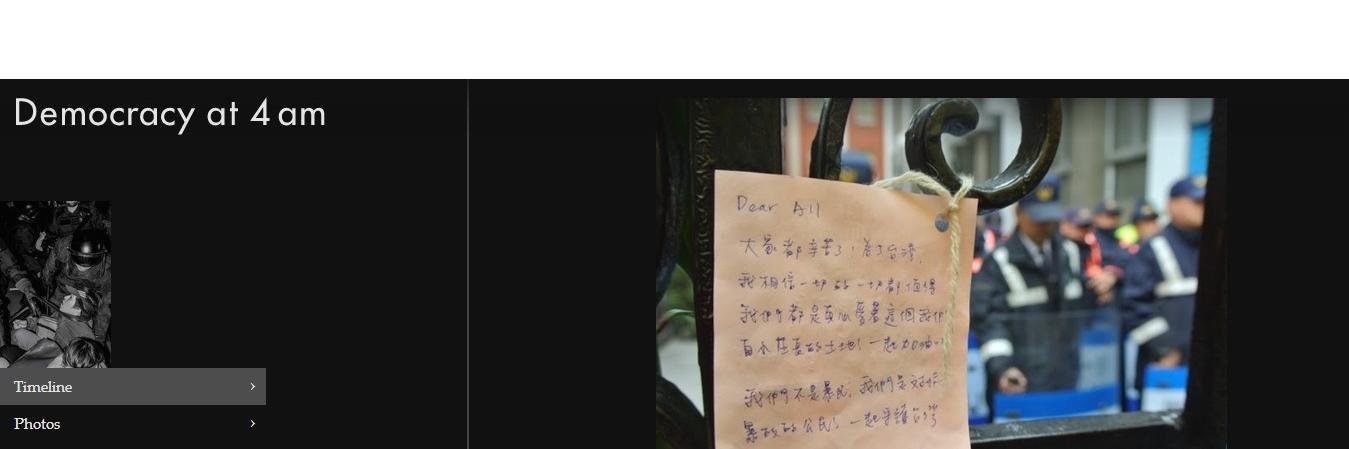 Democracy at 4 am
Timeline
Photos
Dear All
大家都辛苦了,為了台灣,
我相信一切的一切都值得
我們都是真心愛著這個我們
起加油
我們不是暴民,我們是對抗
暴政的公民!一起守護台灣